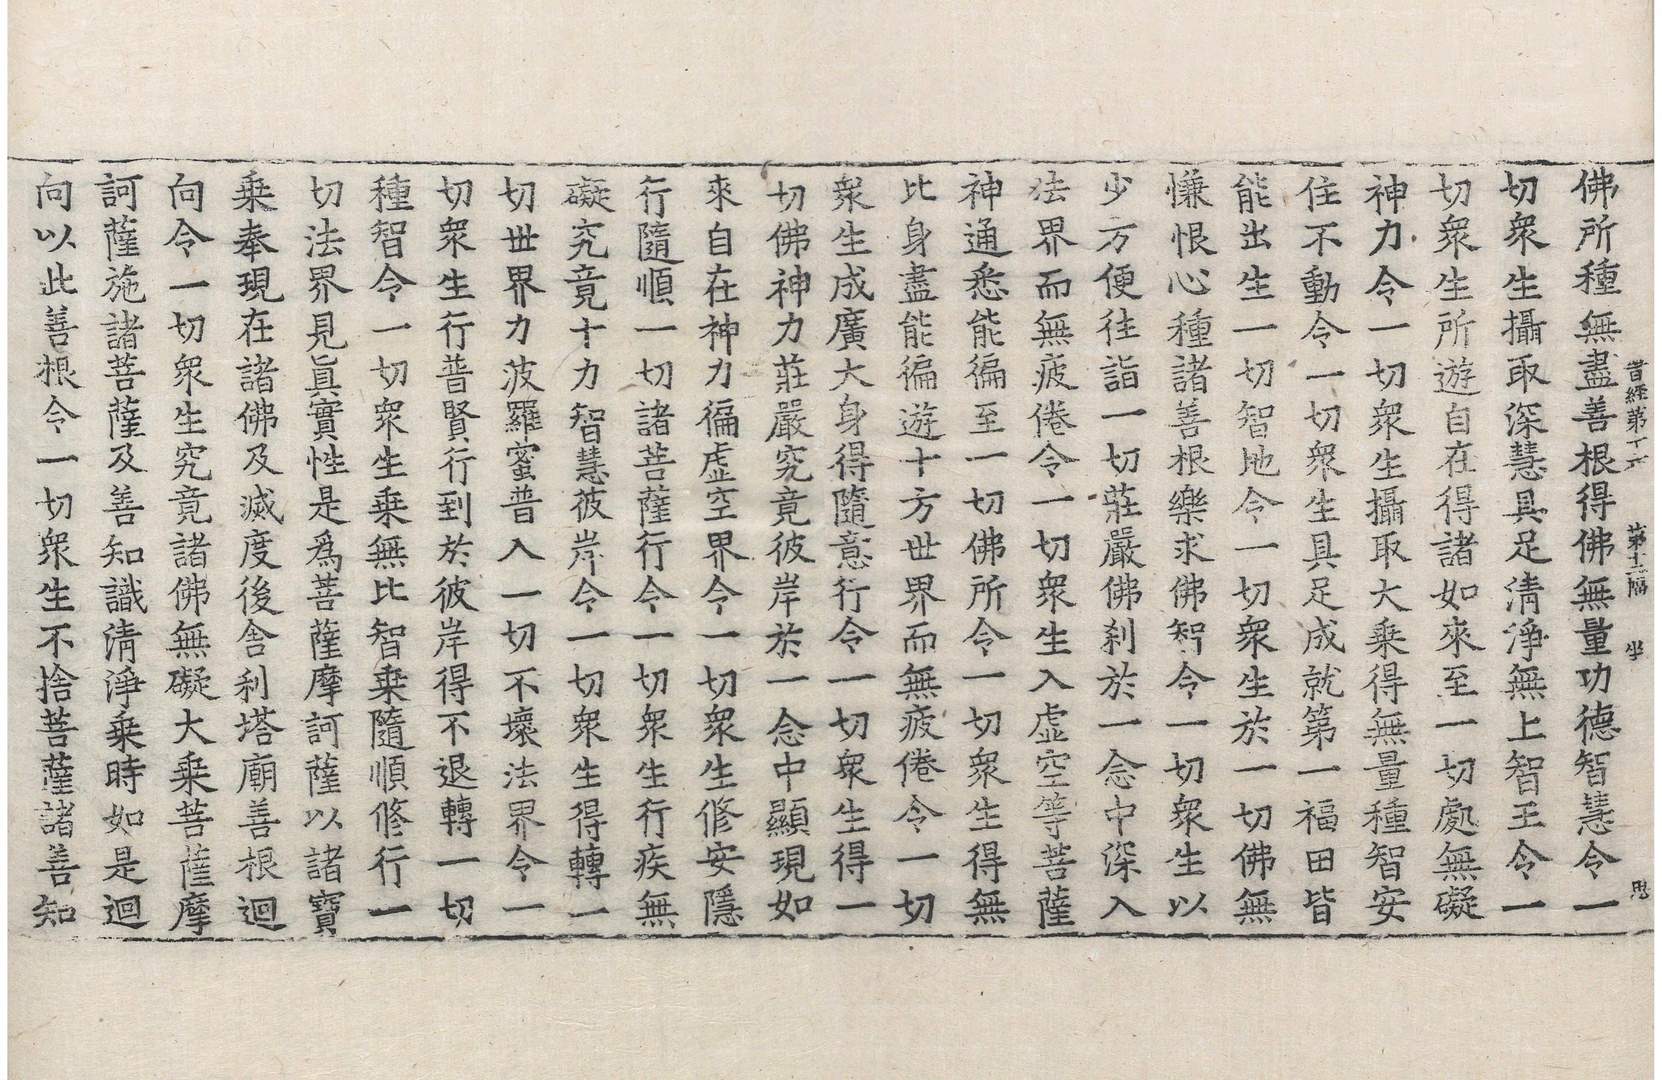 佛所種無盡善根得佛無量功德智慧令一
切衆生攝取深慧具足清淨無上智王令一
切衆生所遊自在得諸如來至一切處無礙
神力令一切衆生攝取大乗得無量種智安
住不動令一切衆生具足成就第一福田皆
能出生一切智地令一切衆生於一切佛無
慊恨心種諸善根樂求佛智令一切衆生以
少方便往詣一切莊嚴佛刹於一念中深入
法界而無疲倦令一切衆生入虛空等菩薩
神通悉能徧至一切佛所令一切衆生得無
比身盡能徧遊十方世界而無疲倦令一切
衆生成廣大身得隨意行令一切衆生得一
切佛神力莊嚴究竟彼岸於一念中顯現如
來自在神力徧虛空界令一切衆生修安隱
行隨順一切諸菩薩行令一切衆生行疾無
礙究竟十力智慧彼岸令一切衆生得轉一
切世界力波羅蜜普入一切不壞法界令一
切衆生行普賢行到於彼岸得不退轉一切
種智令一切衆生乗無比智乗隨順修行一
切法界見眞實性是爲菩薩摩訶薩以諸寶
乗奉現在諸佛及滅度後舎利塔廟善根迴
向令一切衆生究竟諸佛無礙大乗菩薩摩
訶薩施諸菩薩及善知識清淨乗時如是迴
向以此善根令一切衆生不捨菩薩諸善知